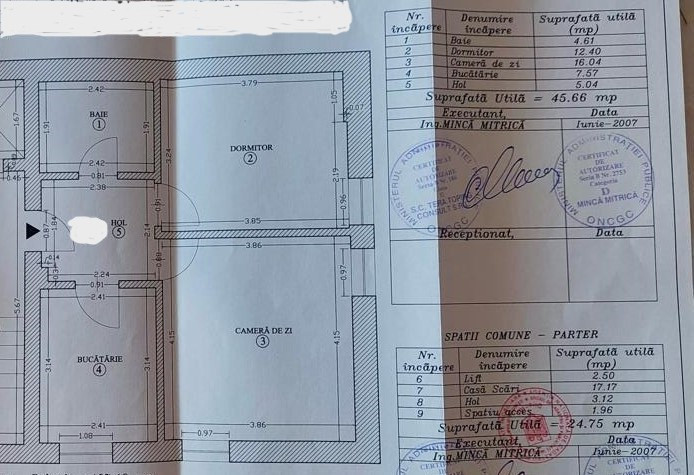 Nr. încăpere Denumire încăpere Suprafată utilă (mp)
1 Baie 4.61
2 Dormitor 12.40
3 Cameră de zi 16.04
4 Bucătărie 7.57
5 Hol 5.04
Suprafată Utilă = 45.66 mp
Executant, Data
Ing.MINCĂ MITRICĂ Iunie-2007
MINISTERUL ADMINISTRATIEI PUBLICE
CERTIFICAT
DE
AUTORIZARE
S.C. TERA TOPO
CONSULT S.R.L.
ONCGC
MINISTERUL ADMINISTRATIEI PUBLICE
CERTIFICAT
DE
AUTORIZARE
Seria B Nr. 2753
Categoria
D
MINCĂ MITRICĂ
ONCGC
Receptionat, Data
SPATII COMUNE - PARTER
Nr. încăpere Denumire încăpere Suprafată utilă (mp)
6 Lift 2.50
7 Casă Scări 17.17
8 Hol 3.12
9 Spatiu acces 1.96
Suprafată Utilă = 24.75 mp
Executant, Data
Ing.MINCĂ MITRICĂ Iunie-2007
2.42
3.79
1.05
0.07
1.67
BAIE
1
1.91
1.91
DORMITOR
2
3.24
2.42
0.81
0.46
2.38
2.19
0.91
0.96
1.84
0.87
HOL
5
2.14
3.85
3.86
0.88
0.4
0.3
2.24
0.91
2.41
0.97
5.67
CAMERĂ DE ZI
3
4.15
4.15
BUCĂTĂRIE
4
3.14
3.14
2.41
3.86
1.08
0.97